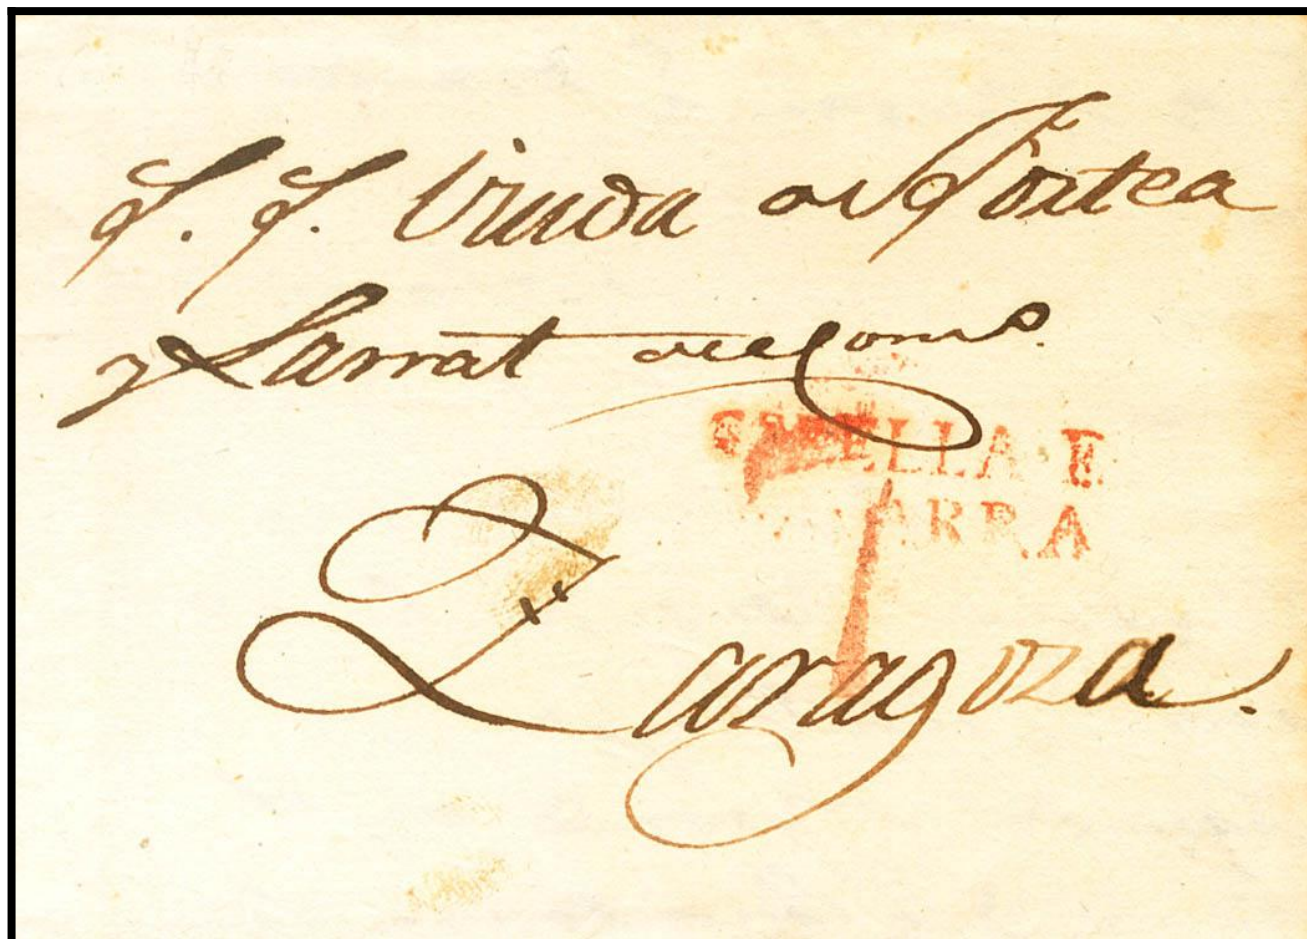 S. S. Viuda de Fortea
y Larrat del Com.º
ESTELLA E
NAVARRA
Zaragoza.